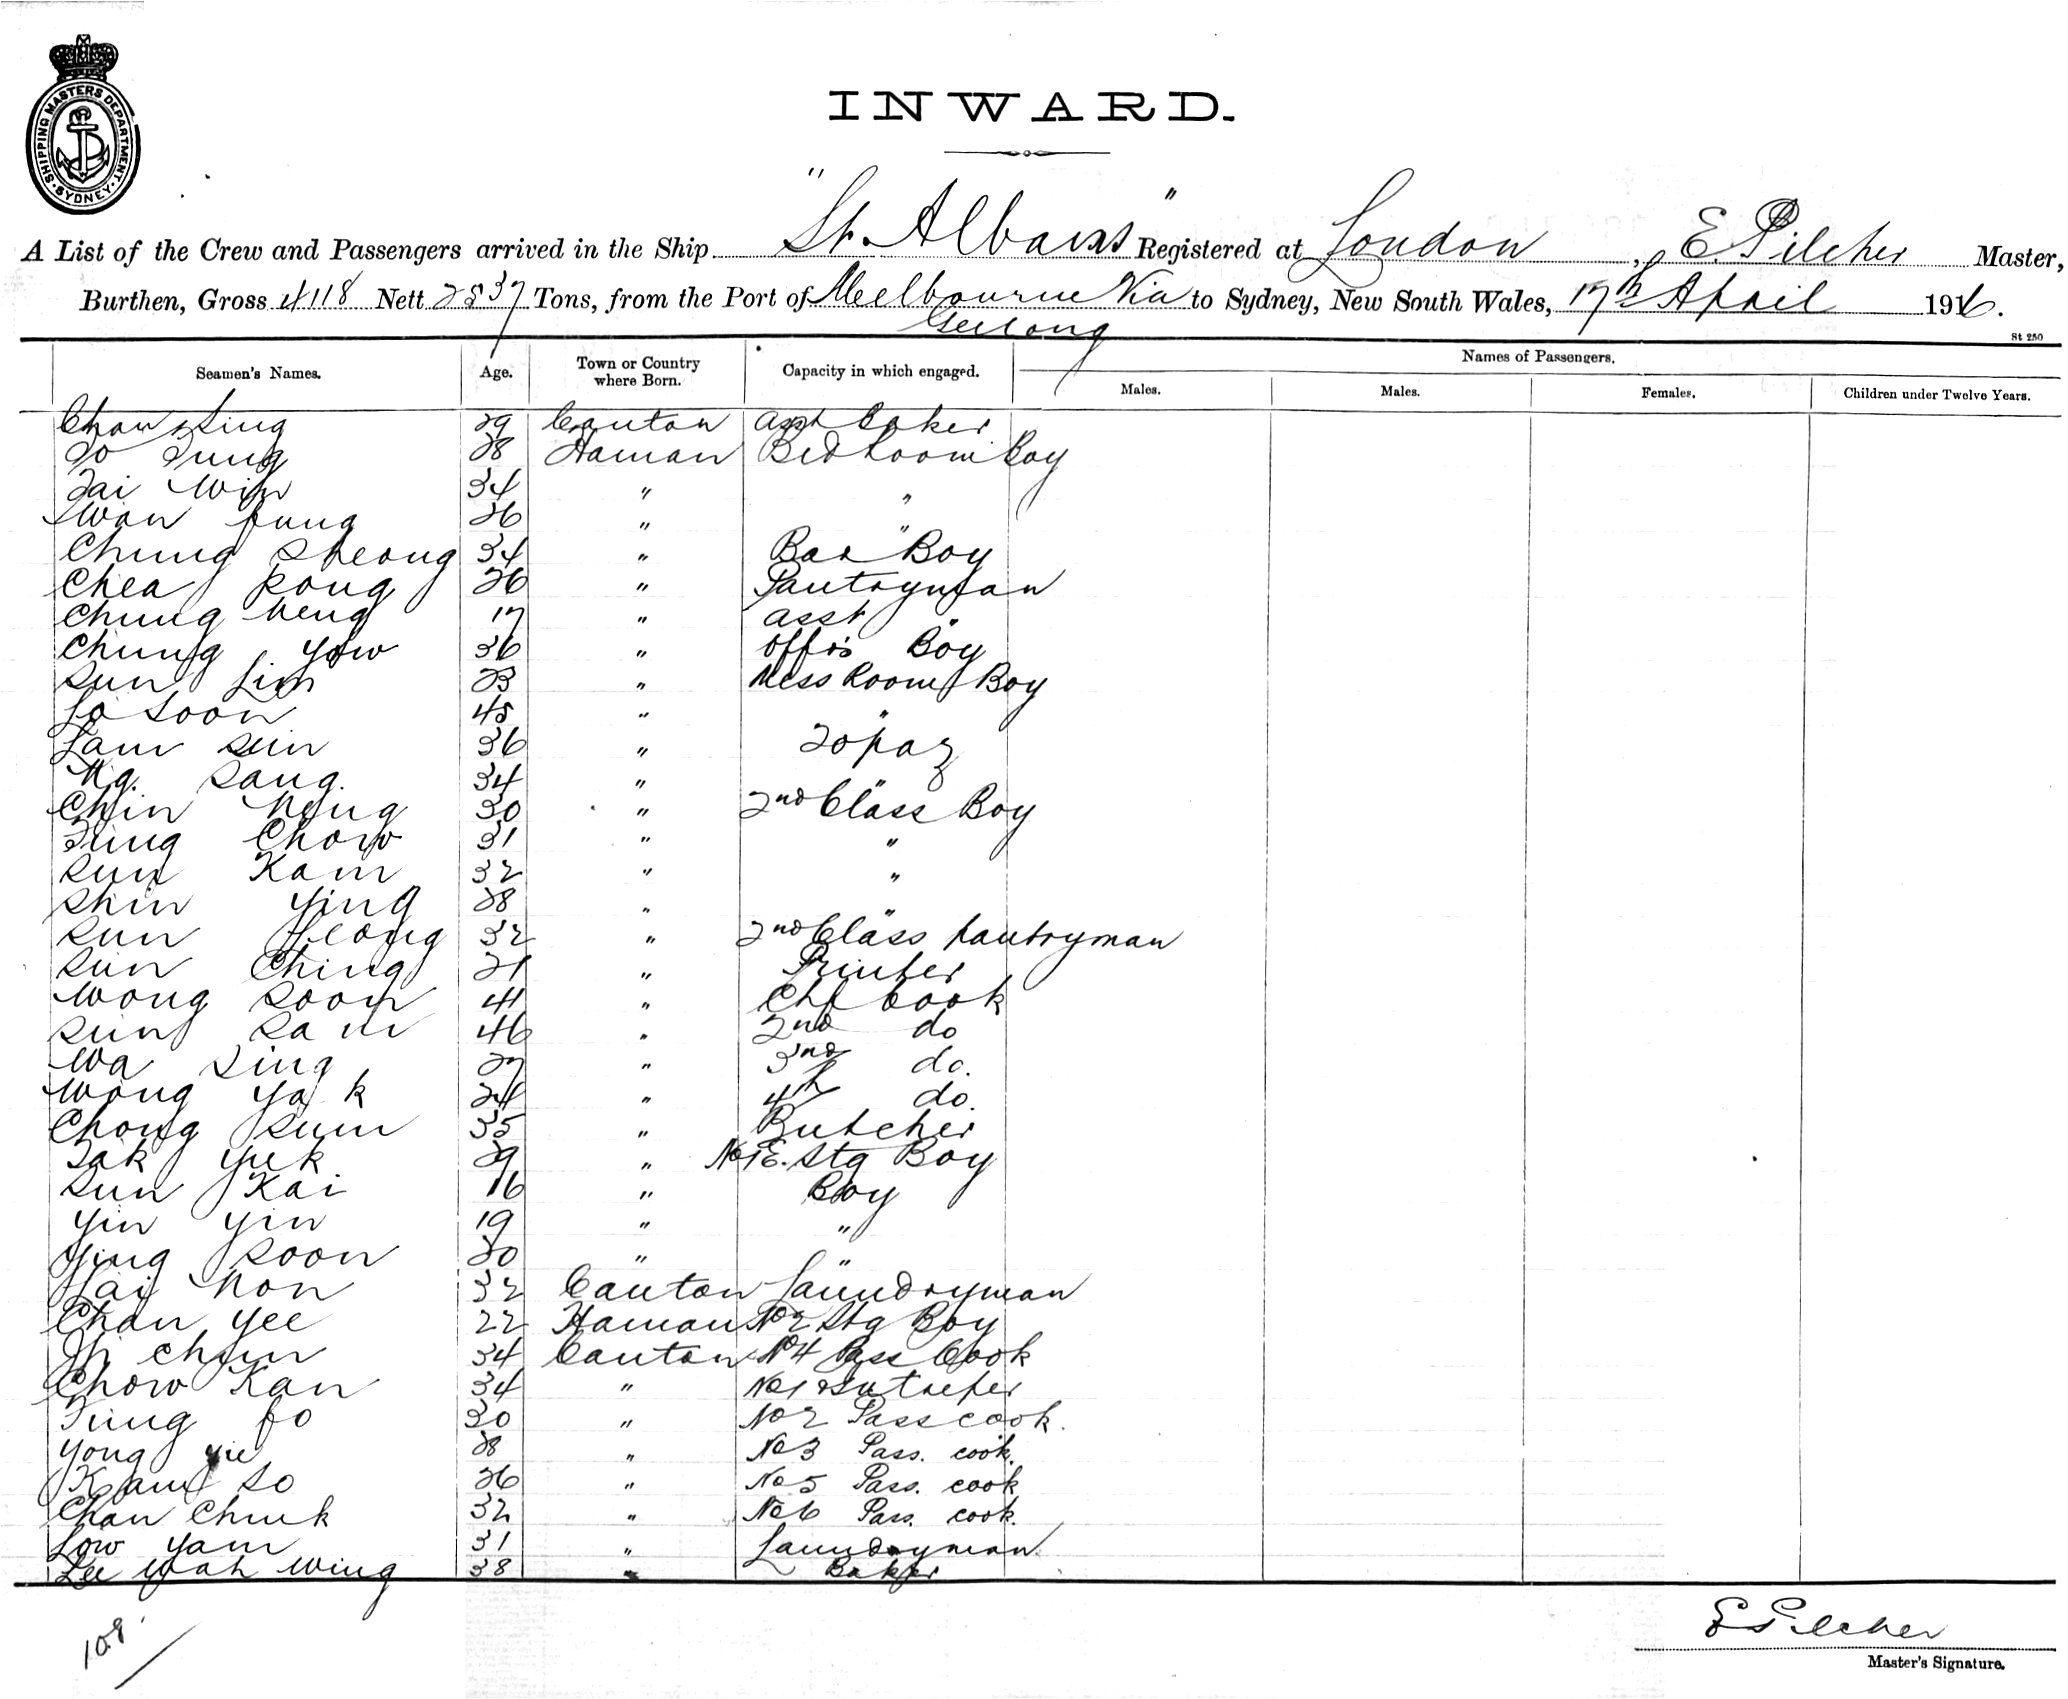 SHIPPING MASTERS DEPARTMENT. SYDNEY.
INWARD.
A List of the Crew and Passengers arrived in the Ship "St. Albans" Registered at London, E. Pilcher Master,
Burthen, Gross 4118 Nett 2537 Tons, from the Port of Melbourne Via to Sydney, New South Wales, 17th April 1916.
Geelong
St 250
Seamen's Names. Age. Town or Country where Born. Capacity in which engaged. Names of Passengers.
Males. Males. Females. Children under Twelve Years.
Chow Sing 29 Canton asst Baker
To Tung 28 Hainan Bed Room Boy
Tai Win 34 " "
Wan Fung 26 " "
Chung Sheong 34 " Bar Boy
Chea Kong 26 " Pantryman
Chung Heng 17 " asst "
Chung Yow 36 " Offrs Boy
Sun Lin 23 " Mess Room Boy
Lo Soon 45 " "
Lam Sun 36 " Topaz
Ng. Sang. 34 " "
Chin Nong 30 " 2nd Class Boy
Tung Chow 31 " "
Sun Kam 32 " "
Shin Ying 28 " "
Sun Heong 32 " 2nd Class Pantryman
Sun Ching 21 " Printer
Wong Soon 41 " Chf Cook
Sun Sam 46 " 2nd do
Wa Sing 27 " 3rd do.
Wong Yak 24 " 4th do.
Chong Sum 35 " Butcher
Tak Yuk 29 " No 1 E. Stg Boy
Sun Kai 16 " Boy
Yin Yin 19 " "
Ying Soon 20 " "
Tai Non 32 Canton Laundryman
Chan Yee 22 Hainan No 2 Stg Boy
Chun 34 Canton No 4 Pass Cook
Chow Kan 34 " No 1
Tung Fo 30 " No 2 Pass cook.
Yong Yie 28 " No 3 Pass. cook.
Kam So 26 " No 5 Pass. cook
Chan Chuk 32 " No 6 Pass. cook.
Low Yam 31 " Laundryman
Lee Wah Wing 38 " Baker
108.
E Pilcher
Master's Signature.